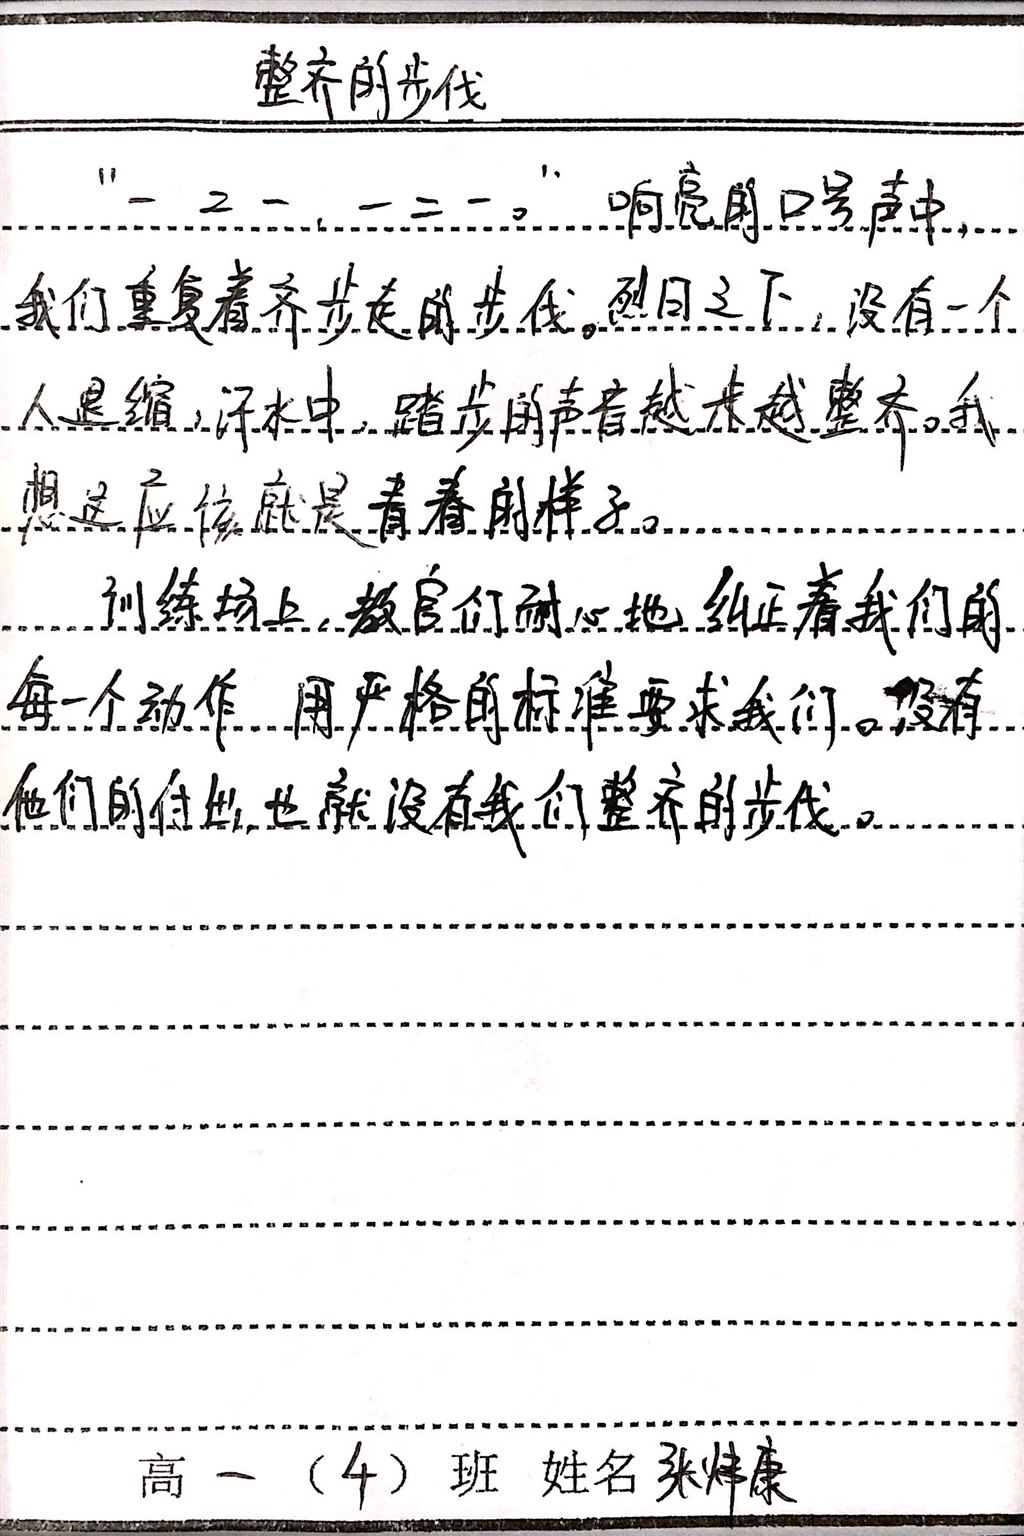 整齐的步伐
"一二一，一二一。"响亮的口号声中，
我们重复着齐步走的步伐。烈日之下，没有一个
人退缩，汗水中，踏步的声音越来越整齐。我
想这应该就是青春的样子。
训练场上，教官们耐心地纠正着我们的
每一个动作 用严格的标准要求我们。没有
他们的付出，也就没有我们整齐的步伐。
高一（4）班 姓名 张炜康